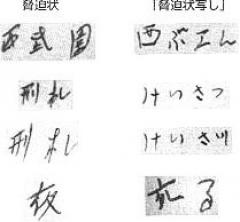 脅迫状　「脅迫状写し」
西武園　西ぶエん
刑札　けいさつ
刑札　けいさツ
夜　夜る